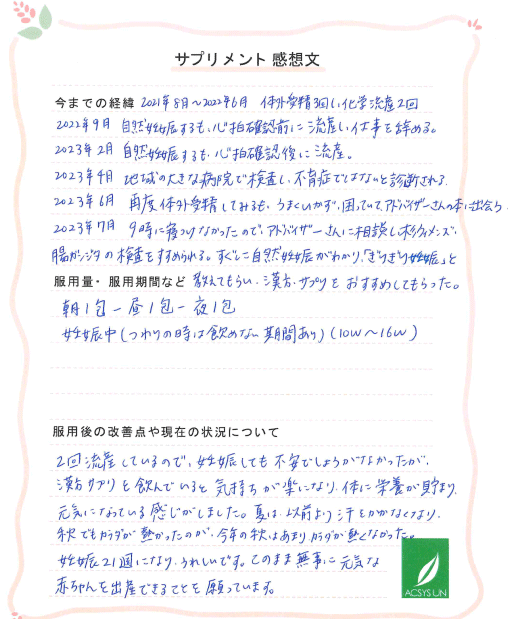 サプリメント 感想文
今までの経緯 2021年8月〜2022年6月 体外受精3回し化学流産2回
2022年9月 自然妊娠するも、心拍確認前に流産し仕事を辞める。
2023年2月 自然妊娠するも、心拍確認後に流産。
2023年4月 地域の大きな病院で検査し、不育症ではないと診断される。
2023年6月 再度体外受精してみるも、うまくいかず、困っていて、アドバイザーさんの本に出会う
2023年7月 9時に寝つけなかったので、アドバイザーさんに相談し
腸カンジタの検査をすすめられる。すぐに自然妊娠がわかり、「ぎりぎり妊娠」と
服用量・服用期間など 教えてもらい、漢方、サプリをおすすめしてもらった。
朝1包ー昼1包ー夜1包
妊娠中(つわりの時は飲めない期間あり)(10W〜16W)
服用後の改善点や現在の状況について
2回流産しているので、妊娠しても不安でしょうがなかったが、
漢方サプリを飲んでいると気持ちが楽になり、体に栄養が貯まり、
元気になっている感じがしました。夏は、以前より汗をかかなくなり、
秋でもカラダが熱かったのが、今年の秋はあまりカラダが熱くなかった。
妊娠21週になり、うれしいです。このまま無事に元気な
赤ちゃんを出産できることを願っています。
ACSYS UN